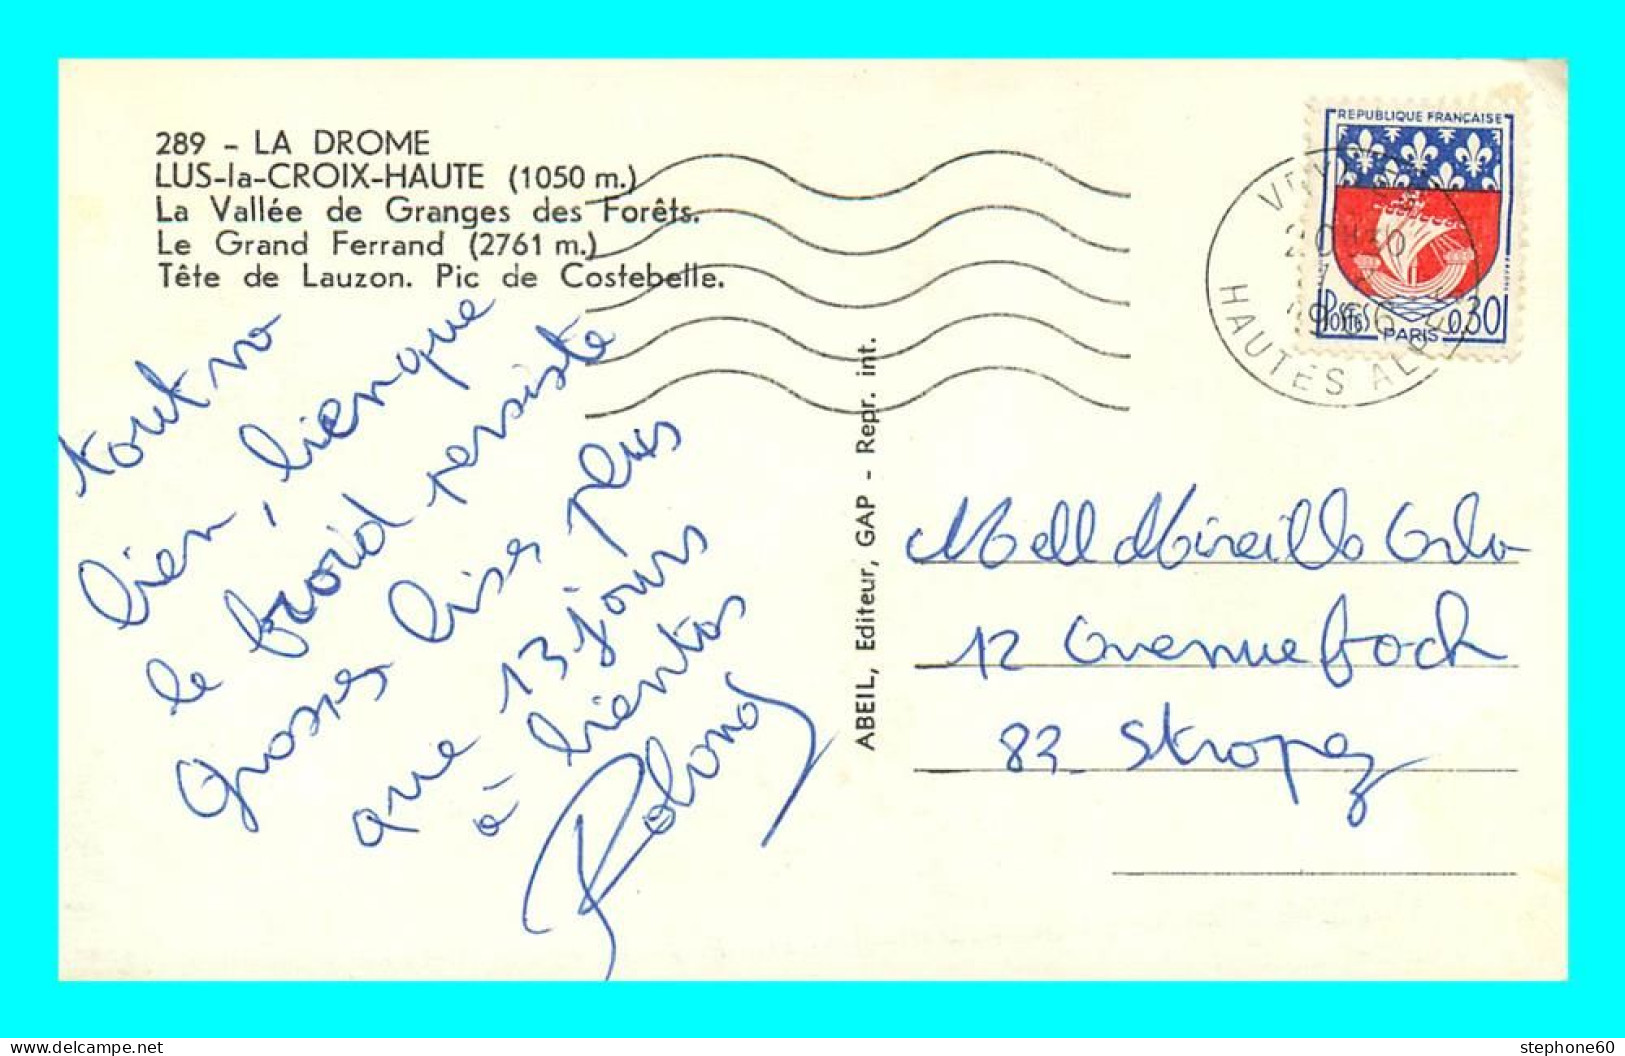 289 - LA DROME
LUS-la-CROIX-HAUTE (1050 m.)
La Vallée de Granges des Forêts.
Le Grand Ferrand (2761 m.)
Tête de Lauzon. Pic de Costebelle.
tout va
bien, bienque
le froid persiste
grosses bises plus
que 13 jours
à bientos
ABEIL, Editeur, GAP - Repr. int.
REPUBLIQUE FRANÇAISE
POSTES
PARIS
0,30
HAUTES ALPES
Mell Mireille
12 Avenue Foch
83_ St Tropez
stephone60